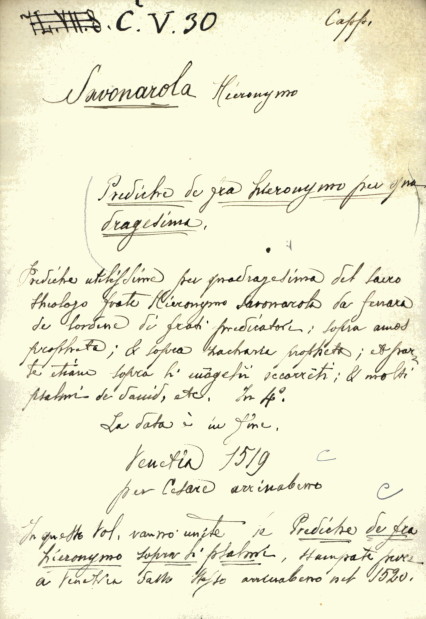 Č. V. 30
Capp.
Savonarola Hieronymo
Prediche de fra hieronymo per qua
dragesima.
Prediche utilissime per quadragesima del sacro
theologo frate Hieronymo Savonarola da ferrara
de lordine di frati predicatori; sopra amos
propheta; & sopra zacharia propheta; et par
te etiam sopra li evāgelii occorrēti; & molti
psalmi de david, etc. In 4°.
La data è in fine.
Venetia 1519
per Cesare arrivabeno
In questo Vol. vanno unite le Prediche de fra
hieronymo sopra di psalmi, stampate pure
a Venetia dallo stesso arrivabeno nel 1520.